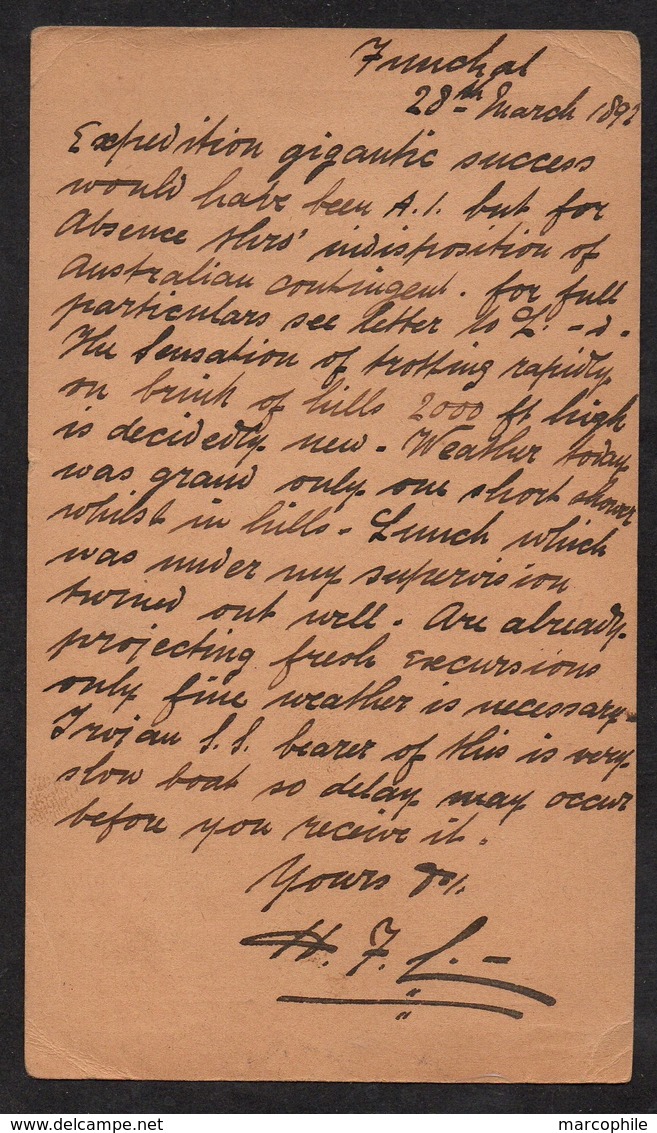 Funchal
28th March 189
Expedition gigantic success
would have been A.1. but for
Absence thro' indisposition of
Australian contingent. for full
particulars see letter to L. - d.
The Sensation of trotting rapidly
on brink of hills 2000 ft high
is decidedly new. Weather today
was grand only one short shower
whilst in hills. Lunch which
was under my supervision
turned out well. Are already
projecting fresh excursions
only fine weather is necessary.
Trojan S.S. bearer of this is very
slow boat so delay may occur
before you receive it.
Yours
H. F. L. -
marcophile